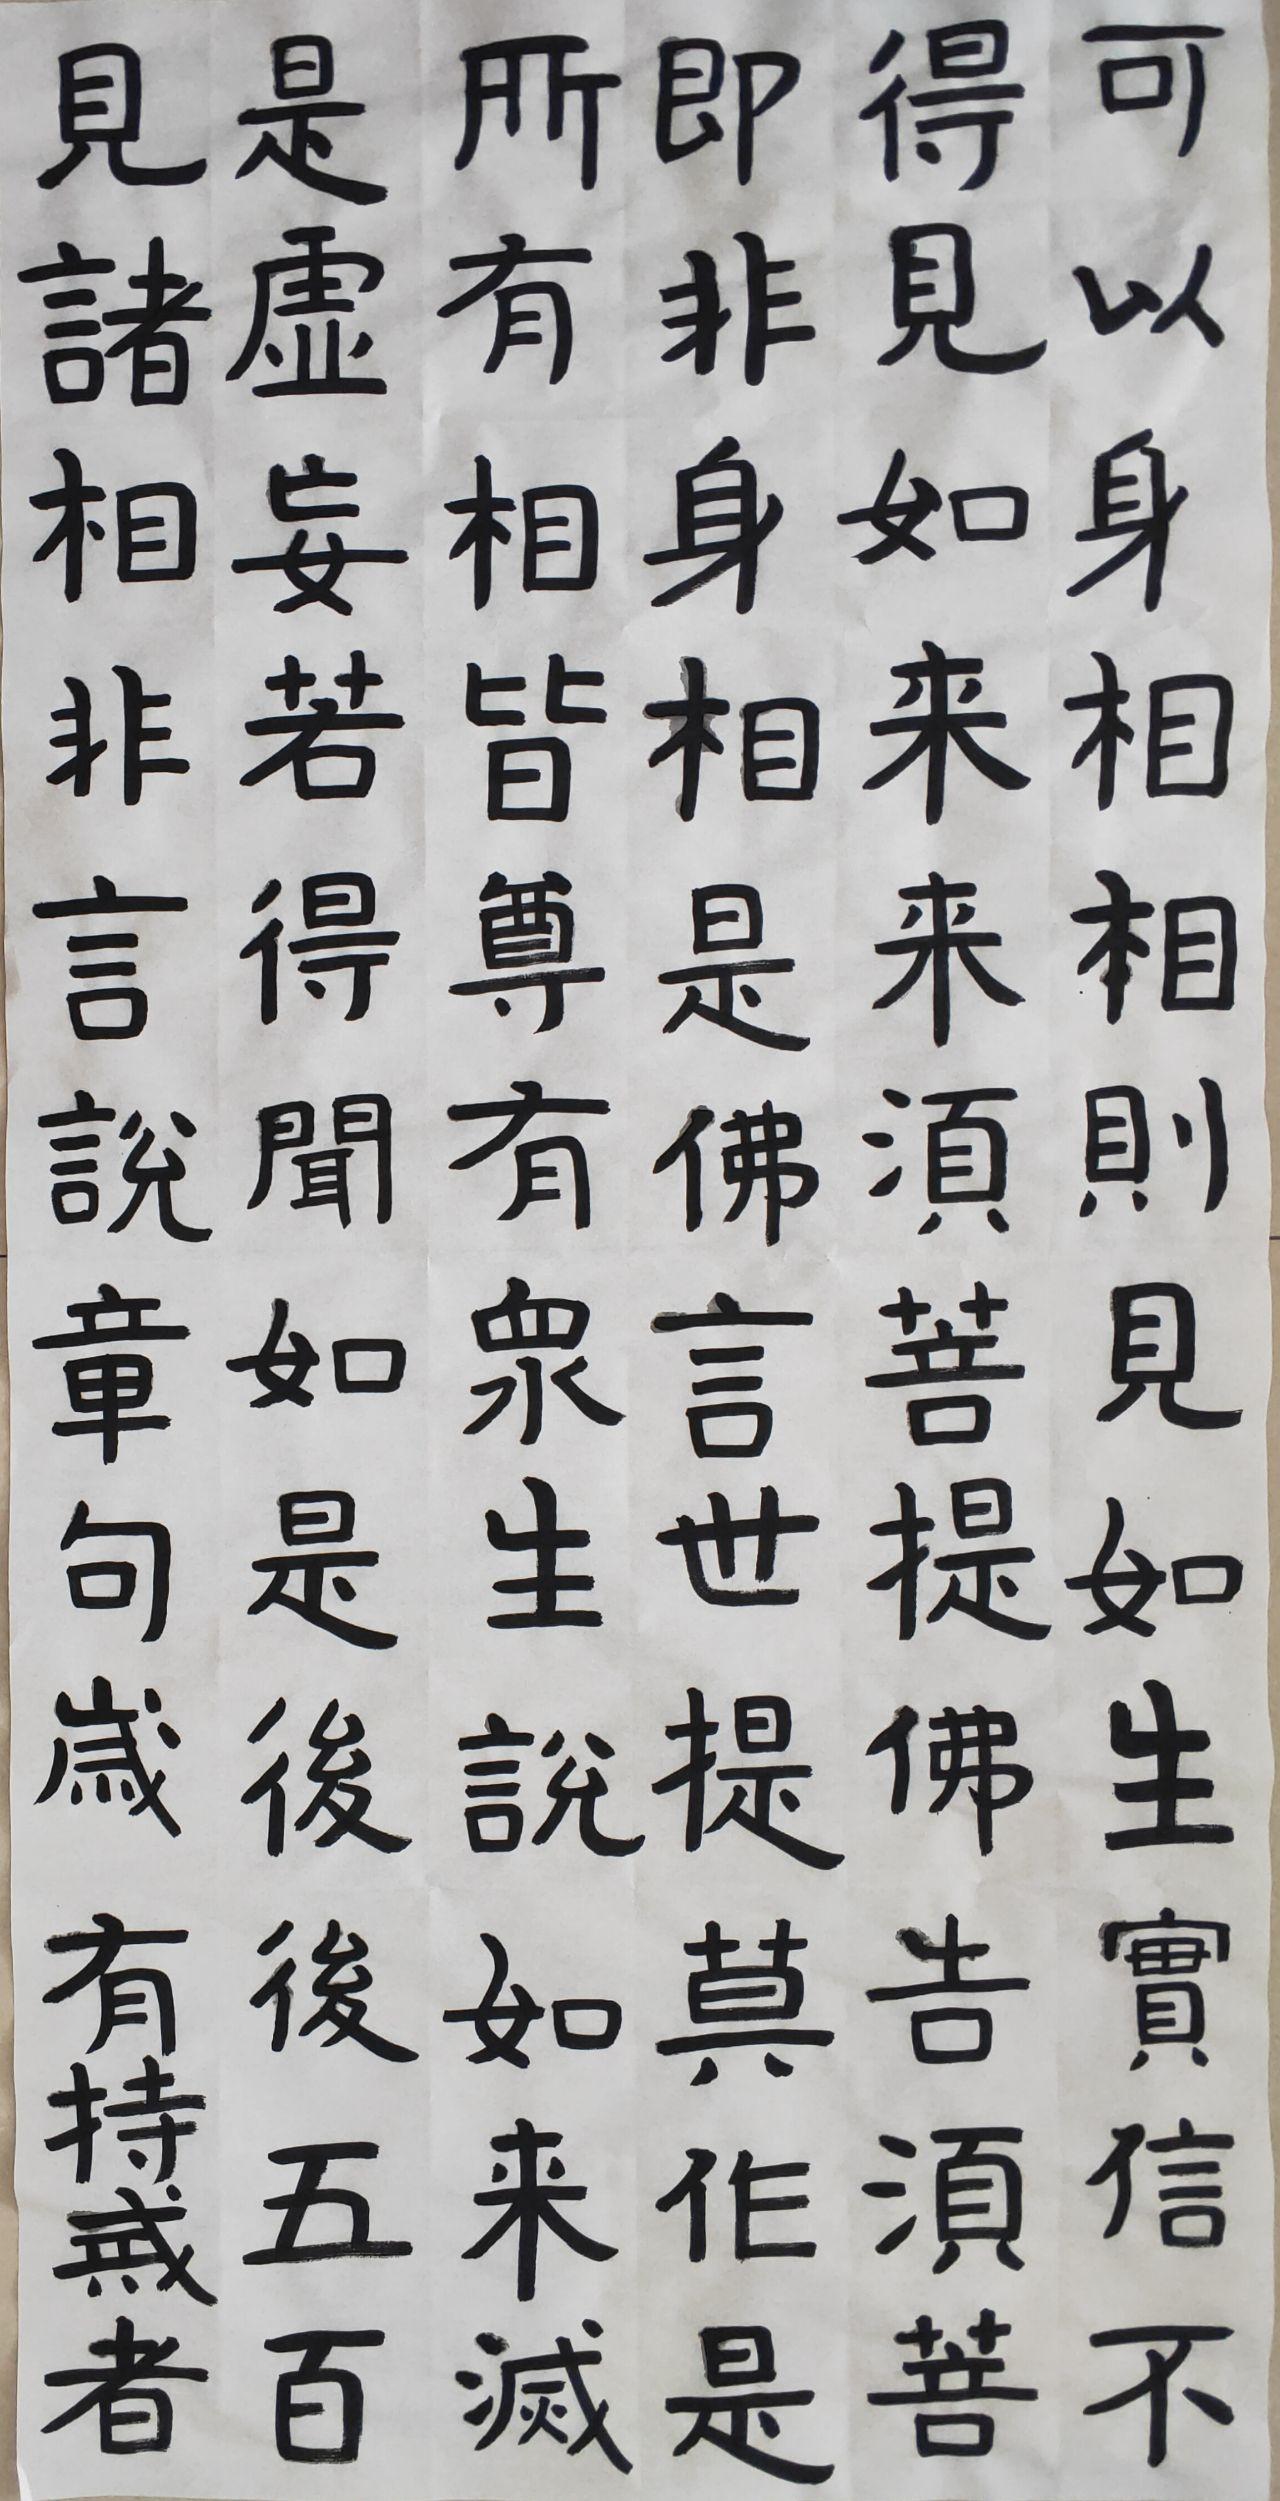 可以身相相則見如生實信不
得見如来来須菩提佛告須菩
即非身相是佛言世提莫作是
所有相皆尊有眾生說如来滅
是虛妄若得聞如是後後五百
見諸相非言說章句歲有持戒者